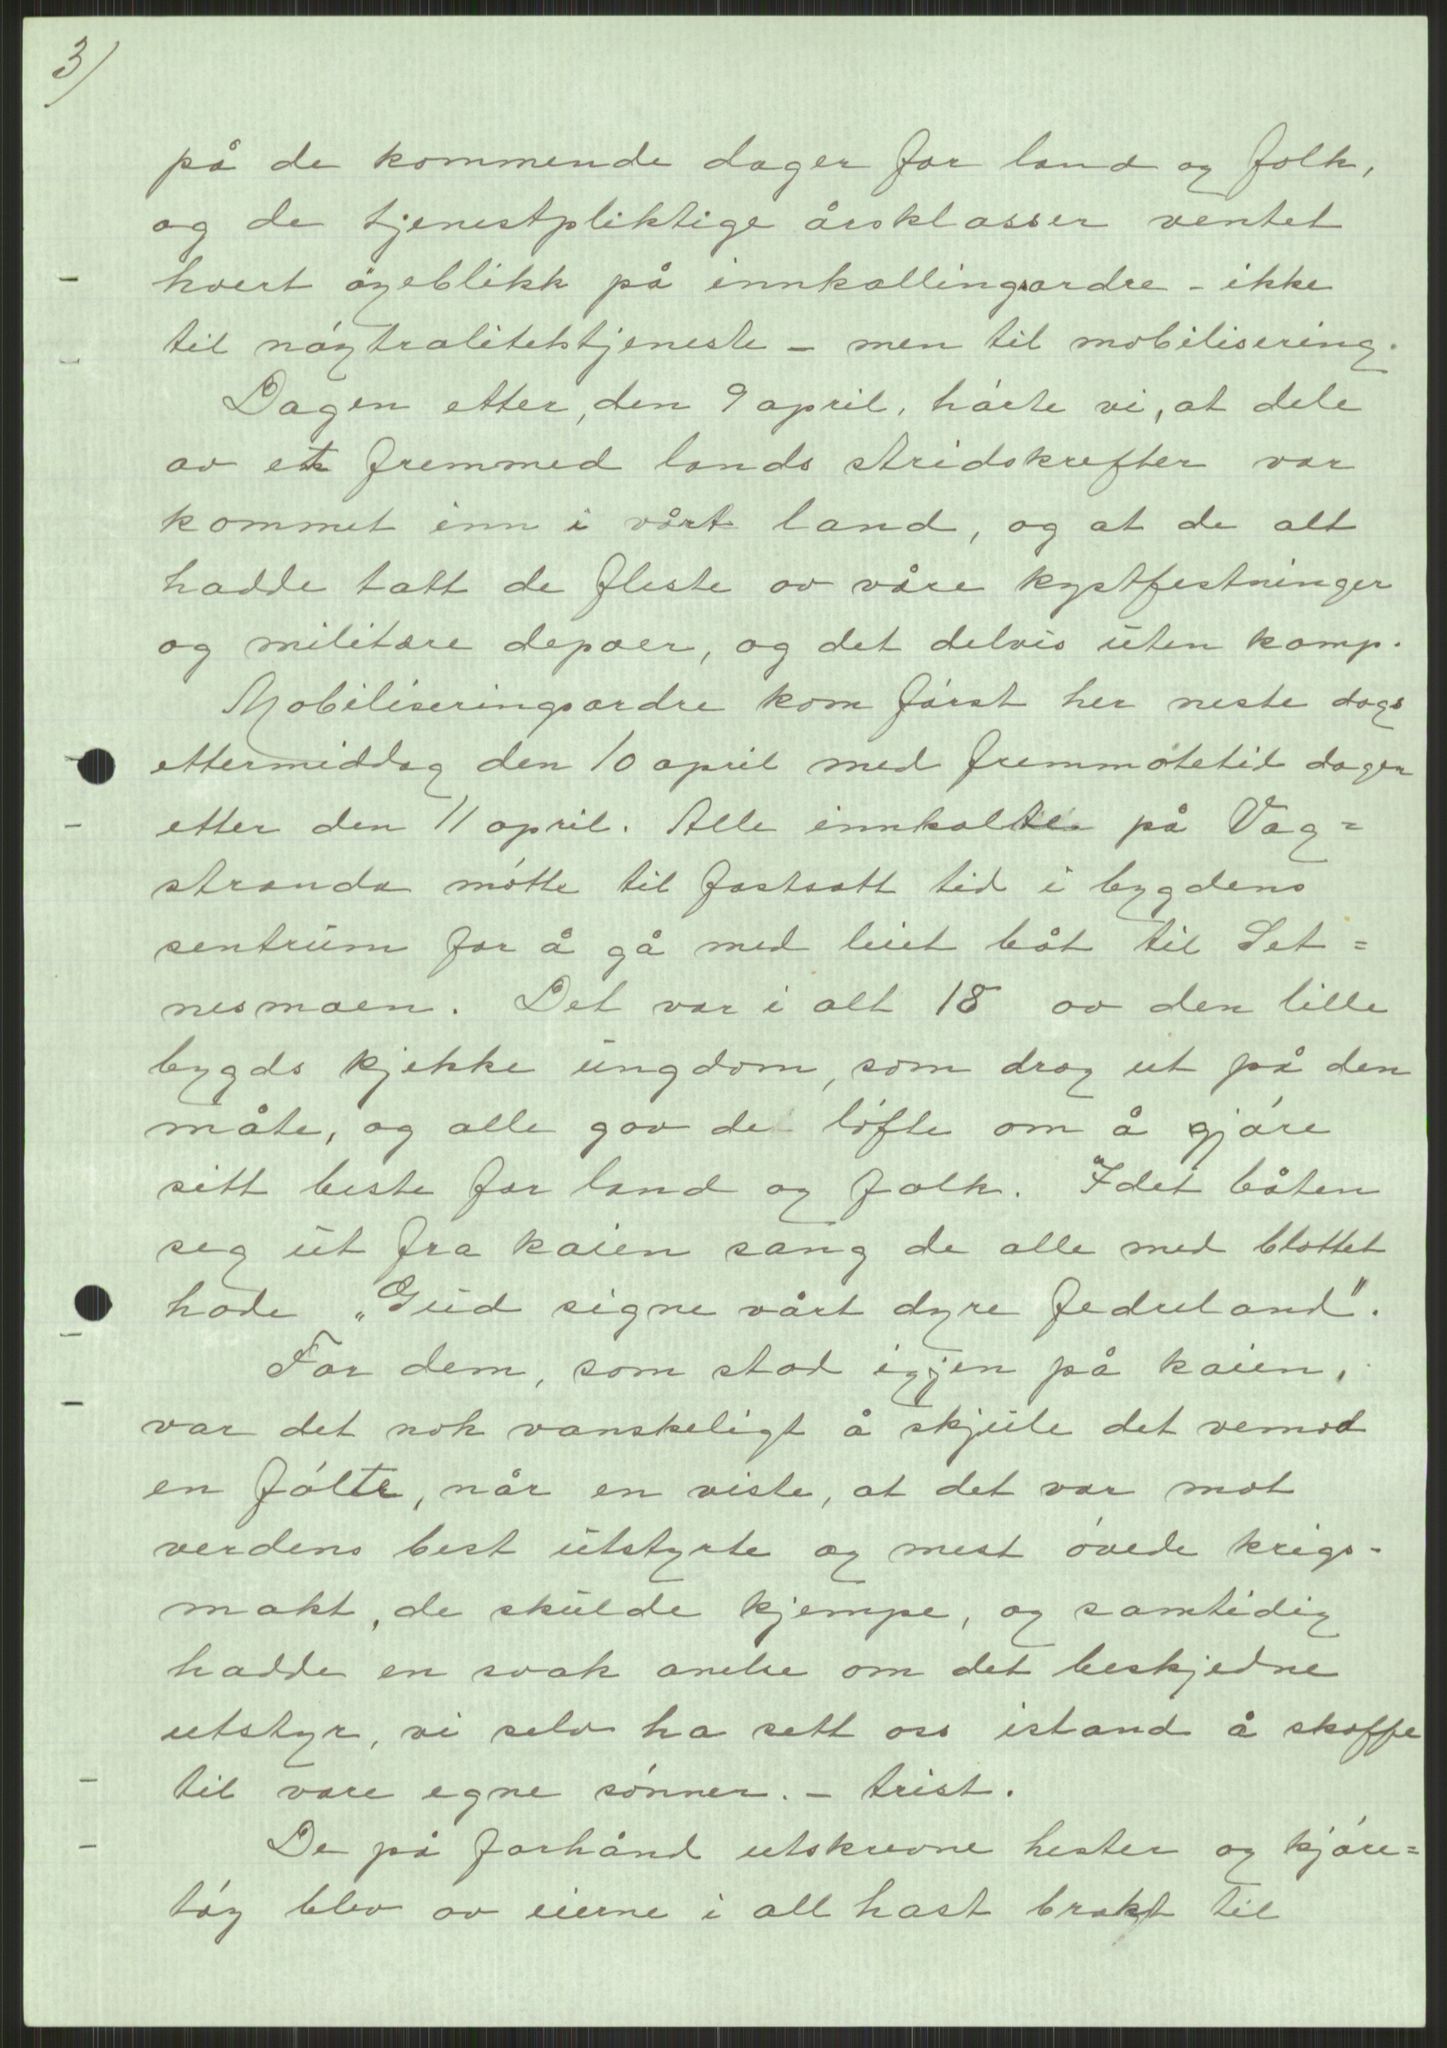 3/
på de kommende dager for land og folk,
og de tjenestpliktige årsklasser ventet
hvert øyeblikk på innkallingsordre - ikke
til nøytralitetstjeneste - men til mobilisering.
Dagen etter, den 9 april, hørte vi, at dele
av et fremmed lands stridskrefter var
kommet inn i vårt land, og at de alt
hadde tatt de fleste av våre kystfestninger
og militære depoer, og det delvis uten kamp.
Mobiliseringsordre kom først her neste dags
ettermiddag den 10 april med fremmøtetid dagen
etter den 11 april. Alle innkalte på Vag=
stranda møtte til fastsatt tid i bygdens
sentrum for å gå med leiet båt til Set=
nesmoen. Det var i alt 18 av den lille
bygds kjekke ungdom, som drog ut på den
måte, og alle gav de løfte om å gjøre
sitt beste for land og folk. Idet båten
seg ut fra kaien sang de alle med blottet
hode „Gud signe vårt dyre fedreland".
For dem, som stod igjen på kaien,
var det nok vanskeligt å skjule det vemod
en følte, når en viste, at det var mot
verdens best utstyrte og mest øvede krigs-
makt, de skulde kjempe, og samtidig
hadde en svak anelse om det beskjedne
utstyr, vi selv ha sett oss istand å skaffe
til vare egne sønner. - trist.
De på forhånd utskrevne hester og kjøre=
tøy blev av eierne i all hast brakt til